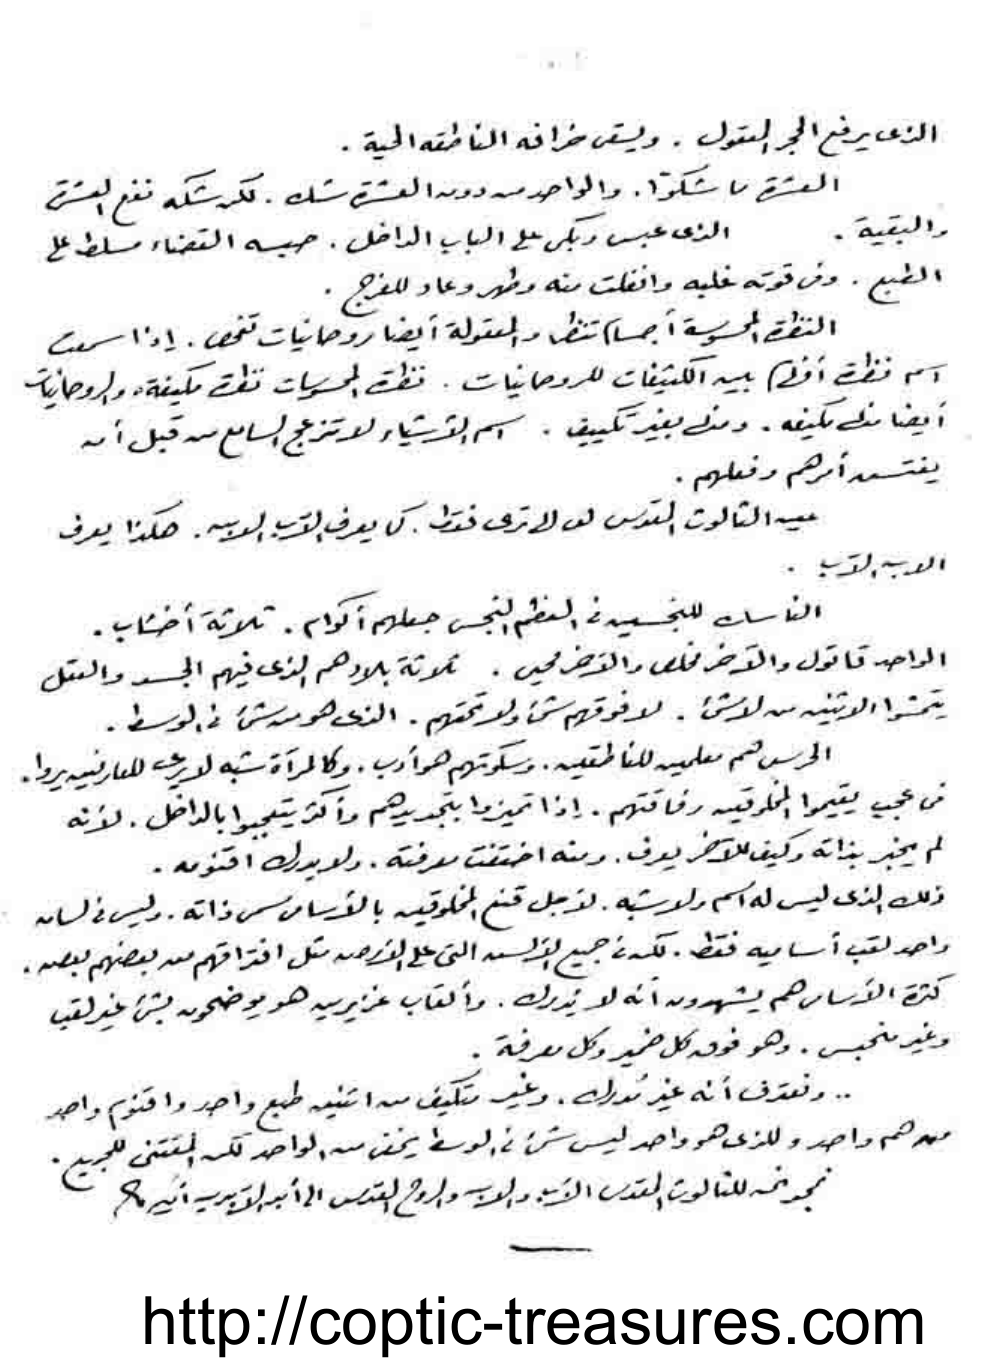 الذى يرفع الحجر المعقول . ويسقى خرافه الناطقه الحية .
العشرة ما شكوّا . والواحد من دون العشرة شك . لكن شكه نفع العشرة
والبقية . الذى عبس وبكى على الباب الداخل . حبسه القضاء مسلط على
الطبع . وفى قوته غلبه وانفلت منه وطهر وعاد للفرح .
النظرة المحسوسة أجسام تنظر والمعقولة أيضا روحانيات تفحص . إذا سمعت
اسم نظرة أفرق بين الكثيفات للروحانيات . نظرة المحسوسات نظرة مكيفة والروحانيات
أيضا منها مكيفه . ومنها بغير تكييف . اسم الأشياء لا تزعج السامع من قبل أن
يفتش أمرهم وفعلهم .
عين الثالوث المقدس له لا ترى فقط . كما يعرف الآب الابن . هكذا يعرف
الابن الآب .
الناسك للنجسين فى العظم النجس جعلهم أكوام . ثلاثة أخشاب .
الواحد قاتول والآخر مخلص والآخر محيى . ثلاثة بلادهم الذى فيهم الجسد والعقل
يتمشوا الاثنين من لا شئ . لا فوقهم شئ ولا تحتهم . الذى هو من شئ فى الوسط .
الخرس هم معلمين للناطقين . وسكوتهم هو أدب . وكالمرآة شبه لا يرى للعارفين يروا .
فى عجب يقيموا المخلوقين رفاقتهم . إذا تميزوا بتجديدهم وأكثر يتعجبوا بالداخل . لأنه
لم يخبر بذاته وكيف للآخر يعرف . ومنه اختفت معرفته . ولا يدرك اقنومه .
ذلك الذى ليس له اسم ولا شبه . لأجل قنع المخلوقين بالأسامى سمى ذاته . وليس فى لسان
واحد لقب أساميه فقط . لكن فى جميع الألسن التى على الأرض مثل افتراقهم من بعضهم بعض .
كثرة الأسامى هم يشهدون أنه لا يُدرك . وألقاب غزيرين هو يوضحون بشئ غير لقب
وغير منحبس . وهو فوق كل ضمير وكل معرفة .
.. ونعترف أنه غير مُدرك . وغير متكيف من اثنين طبع واحد واقنوم واحد
من هم واحد وللذى هو واحد ليس شئ فى الوسط يخفى من الواحد لكن المقتنى للجميع .
نمجد نحن للثالوث المقدس الآب والابن والروح القدس الى أبد الآبدين آمين
http://coptic-treasures.com